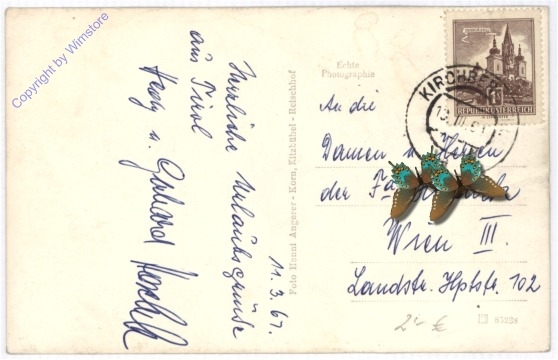 Copyright by Wimstore
Herzliche Urlaubsgrüsse
aus Tirol
11.3.61.
Foto Henni Angerer - Korn, Kitzbühel - Reischhof
Echte
Photographie
REPUBLIK ÖSTERREICH
KIRCHBE
An die
Damen u. Herren
der
Wien III.
Landstr. Hptstr. 102
2'- €